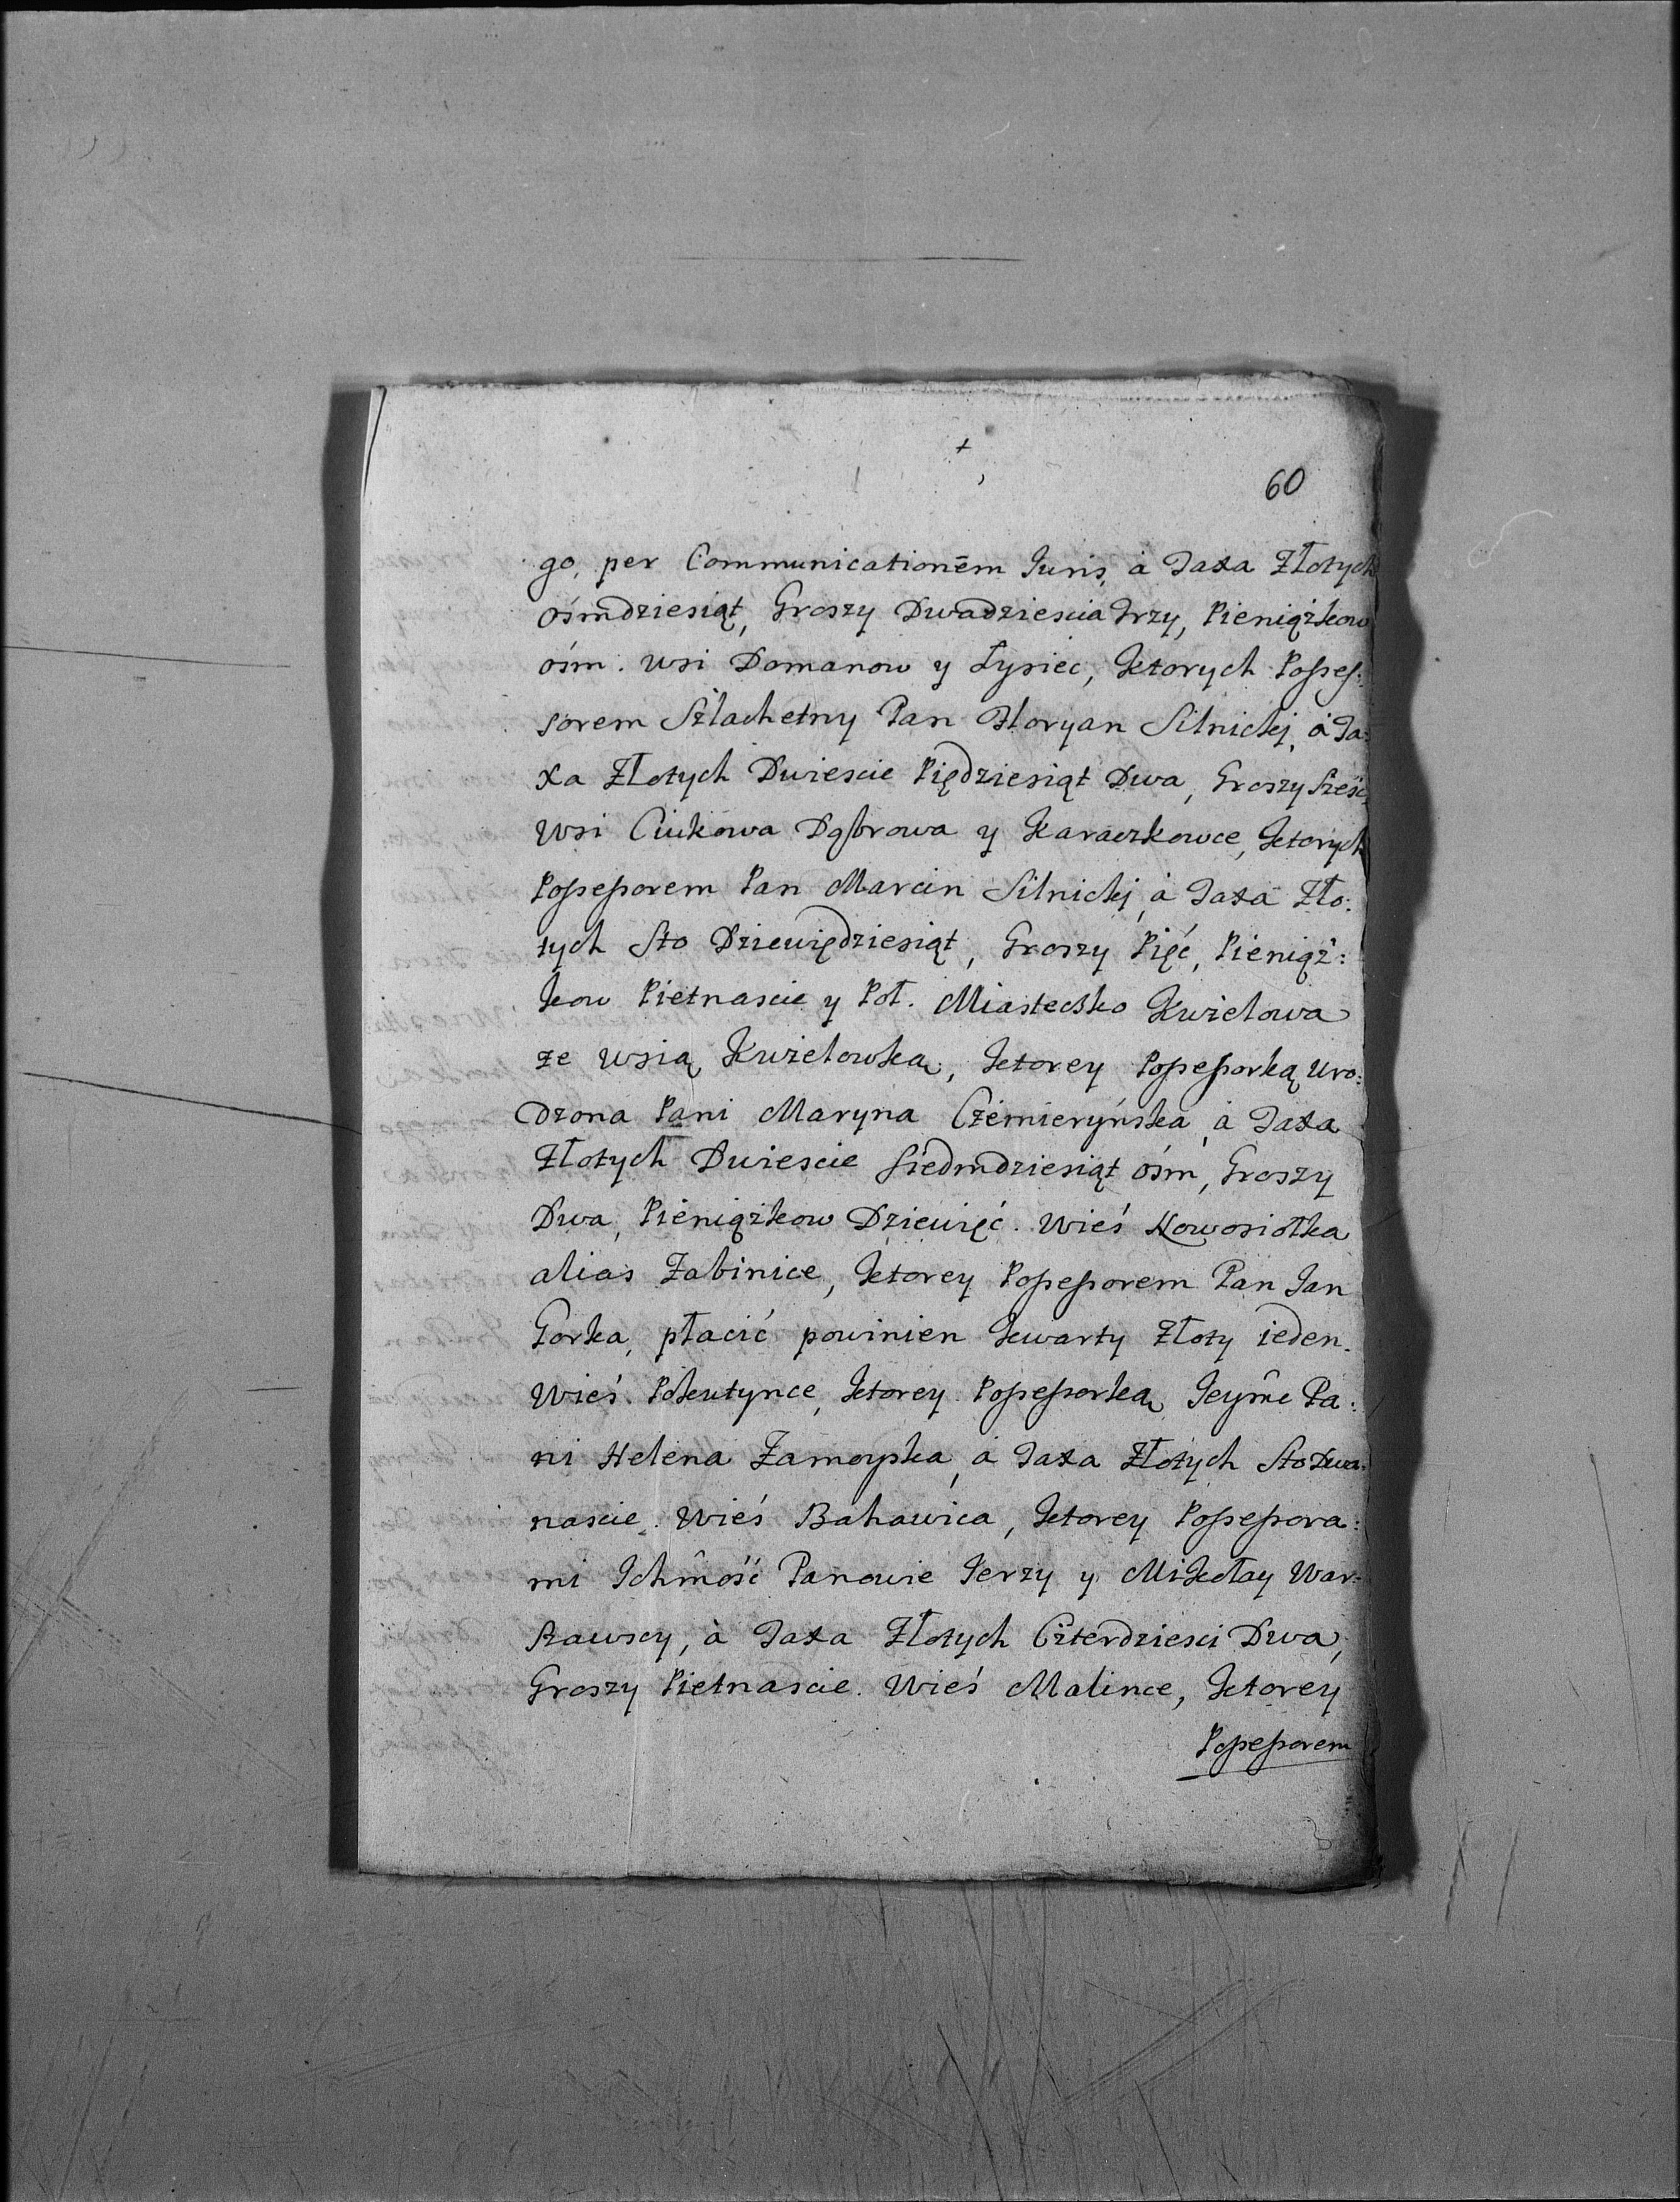 60
go, per Communicationēm Iuris, à Taxa Złotych
ośmdziesiąt, Groszy Dwadziescia Trzy, Pieniążkow
ośm. Wsi Domanow y Łysiec, ktorych Posses:
sorem Szlachetny Pan Floryan Silnickj, à Ta:
xa Złotych Dwiescie Piędziesiąt Dwa, Groszy Sześć,
Wsi Ciukowa Dąbrowa y Karaczkowce, ktorych
Possessorem Pan Marcin Silnickj, à Taxa Zło:
tych Sto Dziewiędziesiąt, Groszy Pięć, Pieniąż:
kow Pietnascie y Poł. Miasteczko Kwiełowa
ze wsią Kwiełowką, ktorey Possessorką Uro:
dzona Pani Maryna Czemieryńska, à Taxa
Złotych Dwiescie siedmdziesiąt ośm, Groszy
Dwa, Pieniążkow Dziewięć. Wieś Nowosiołka
alias Zabinice, ktorey Possessorem Pan Jan
Gorka, płacić powinien kwarty Złoty ieden.
Wieś Pokutynce, ktorey Possessorką Jeym̂c Pa:
ni Helena Zamoyska, à Taxa Złotych Sto Dwa:
nascie. Wieś Bahawica, ktorey Possessora:
mi Ichm̂ość Panowie Jerzy y Mikołay War:
szawscy, à Taxa Złotych Czterdziesci Dwa,
Groszy Pietnascie. Wieś Malince, ktorey
Possessorem